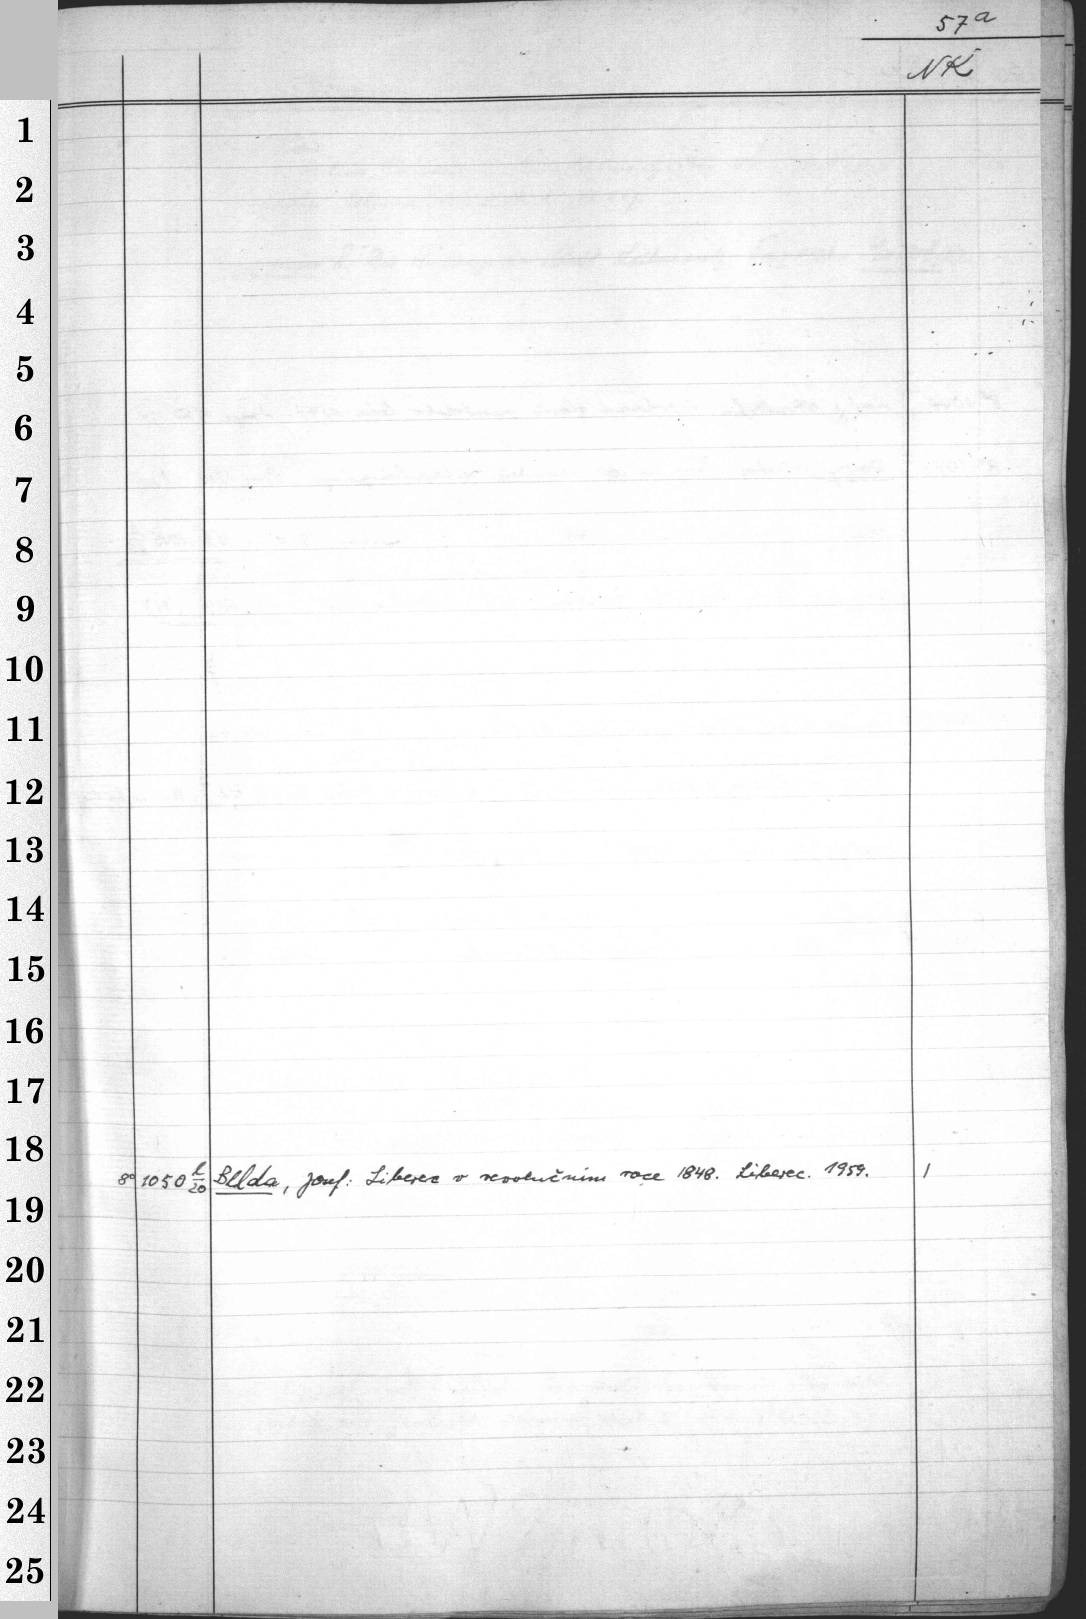 57a
NK
1
2
3
4
5
6
7
8
9
10
11
12
13
14
15
16
17
18
8° 1050 l/20 Bělda, Josef: Liberec v revolučním roce 1848. Liberec. 1959. 1
19
20
21
22
23
24
25